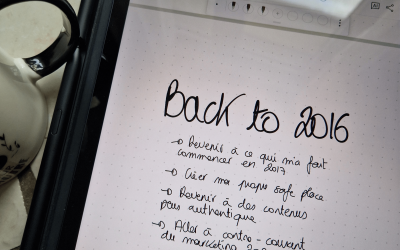 Back to 2016
→ Revenir à ce qui m'a fait
commencer en 2017
→ Créer ma propre safe place
→ Revenir à des contenus
plus authentique
→ Aller à contre-courant
du marketing